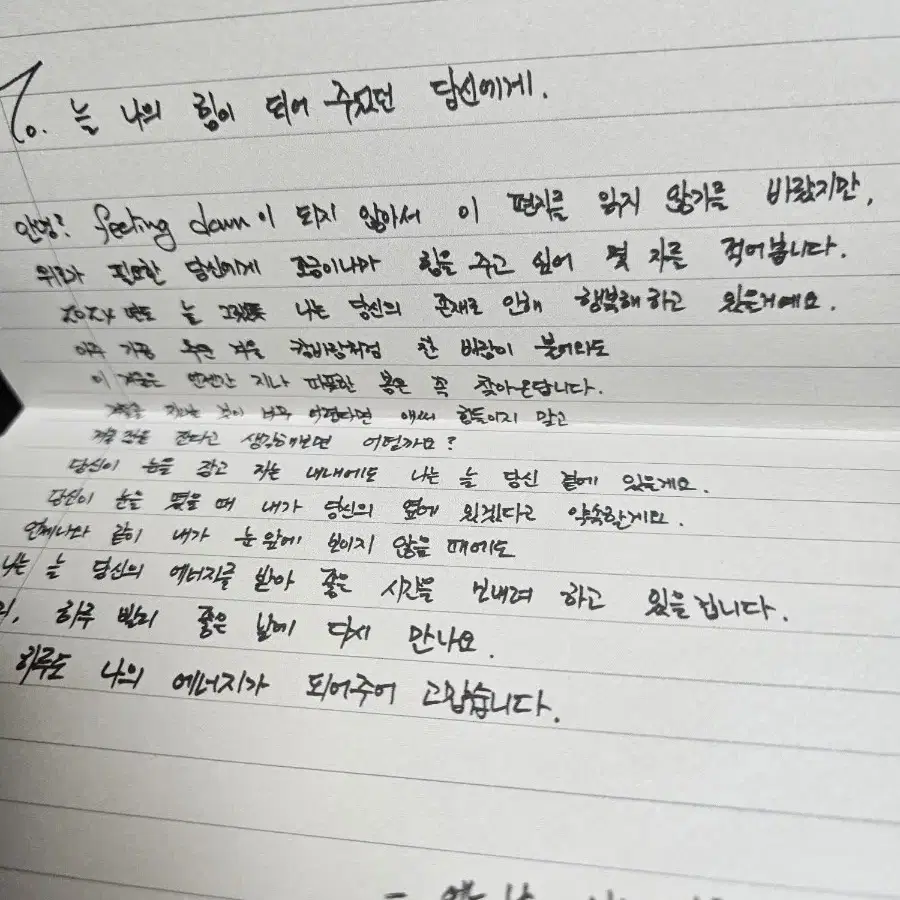 To. 늘 나의 힘이 되어 주었던 당신에게.
안녕? feeling down이 되지 않아서 이 편지를 읽지 않기를 바랐지만,
위로가 필요한 당신에게 조금이나마 힘을 주고 싶어 몇 자를 적어봅니다.
2024년도 늘 그랬듯 나는 당신의 존재로 인해 행복해하고 있을거예요.
아주 가끔 추운 겨울 칼바람처럼 찬 바람이 불어와도
이 겨울은 언젠간 지나 따뜻한 봄은 꼭 찾아온답니다.
겨울을 지나는 것이 너무 어렵다면 애써 힘들이지 말고
겨울잠을 잔다고 생각해보면 어떨까요?
당신이 눈을 감고 자는 내내에도 나는 늘 당신 곁에 있을게요.
당신이 눈을 떴을 때 내가 당신의 옆에 있겠다고 약속할게요.
언제나와 같이 내가 눈앞에 보이지 않을 때에도
나는 늘 당신의 에너지를 받아 좋은 시간을 보내려 하고 있을 겁니다.
하루 빨리 좋은 날에 다시 만나요.
하루도 나의 에너지가 되어주어 고맙습니다.